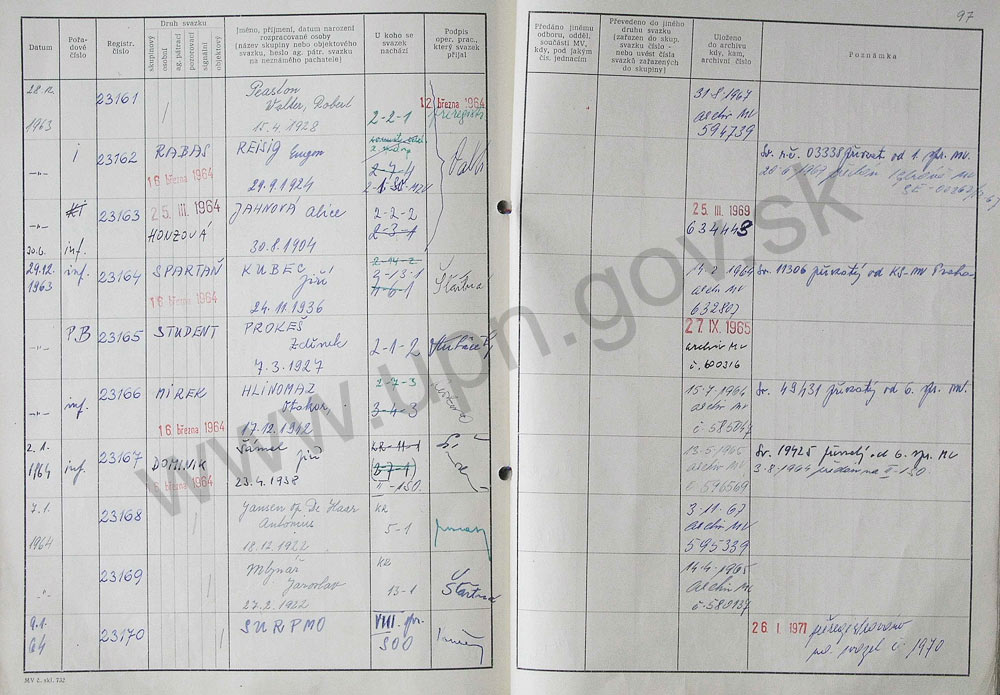 97
Datum
Pořadové číslo
Registr. číslo
Druh svazku
skupinový
osobní
ag. pátrací
pozorovací
signální
objektový
Jméno, příjmení, datum narození
rozpracované osoby
(název skupiny nebo objektového
svazku, heslo ag. pátr. svazku
na neznámého pachatele)
U koho se
svazek
nachází
Podpis
oper. prac.,
který svazek
přijal
Předáno jinému
odboru, odděl.
součásti MV,
kdy, pod jakým
čís. jednacím
Převedeno do jiného
druhu svazku
(zařazen do skup.
svazku číslo -
nebo uvést čísla
svazků zařazených
do skupiny)
Uloženo
do archivu
kdy, kam,
archivní číslo
Poznámka
1963
23161
Walder, Robert
15.4.1928
2-2-1
12. března 1964
31.8.1967
archiv MV
594739
23162
RABAS
16 března 1964
REISIG Eugen
29.9.1924
2-7-4
23163
25. III. 1964
HONZOVÁ
JAHNOVÁ Alice
30.8.1904
2-2-2
2-3-1
25. III. 1969
634448
inf.
29.12.
1963
inf.
23164
SPARTAŇ
16 března 1964
KUBEC
Jiří
24.11.1936
archiv MV
632807
Sv. 11306 převzatý od KS-MV Praha
P.B
23165
STUDENT
PROKEŠ
Zdeněk
7.3.1927
2-1-2
27. IX. 1965
archiv MV
č. 600316
inf.
23166
MIREK
16 března 1964
HLINOMAZ
Otakar
17.12.1942
2-7-3
3-4-3
15.7.1964
archiv MV
Sv. 49431 převzatý od 6. spr. MV.
2.1.
1964
inf.
23167
DOMINIK
března 1964
Jiří
23.4.1938
II-150.
13.5.1965
archiv MV
č. 596569
7.1.
1964
23168
Jansen op De Haar
Antonius
18.12.1922
5-1
3.11.67
archiv MV
595339
23169
Mlynář
Jaroslav
27.2.1922
13-1
14.4.1965
archiv MV
9.1.
64
23170
SURPMO
VIII. spr.
500
26. I. 1971
přeregistrováno
č. 1970
MV č. skl. 732
www.upn.gov.sk